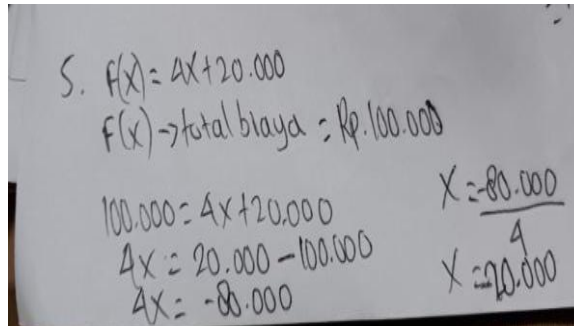 5. f(x) = 4x+20.000
f(x) → total biaya = Rp.100.000
100.000 = 4x+20.000
4x = 20.000 - 100.000
4x = -80.000
X = -80.000
4
X = -20.000